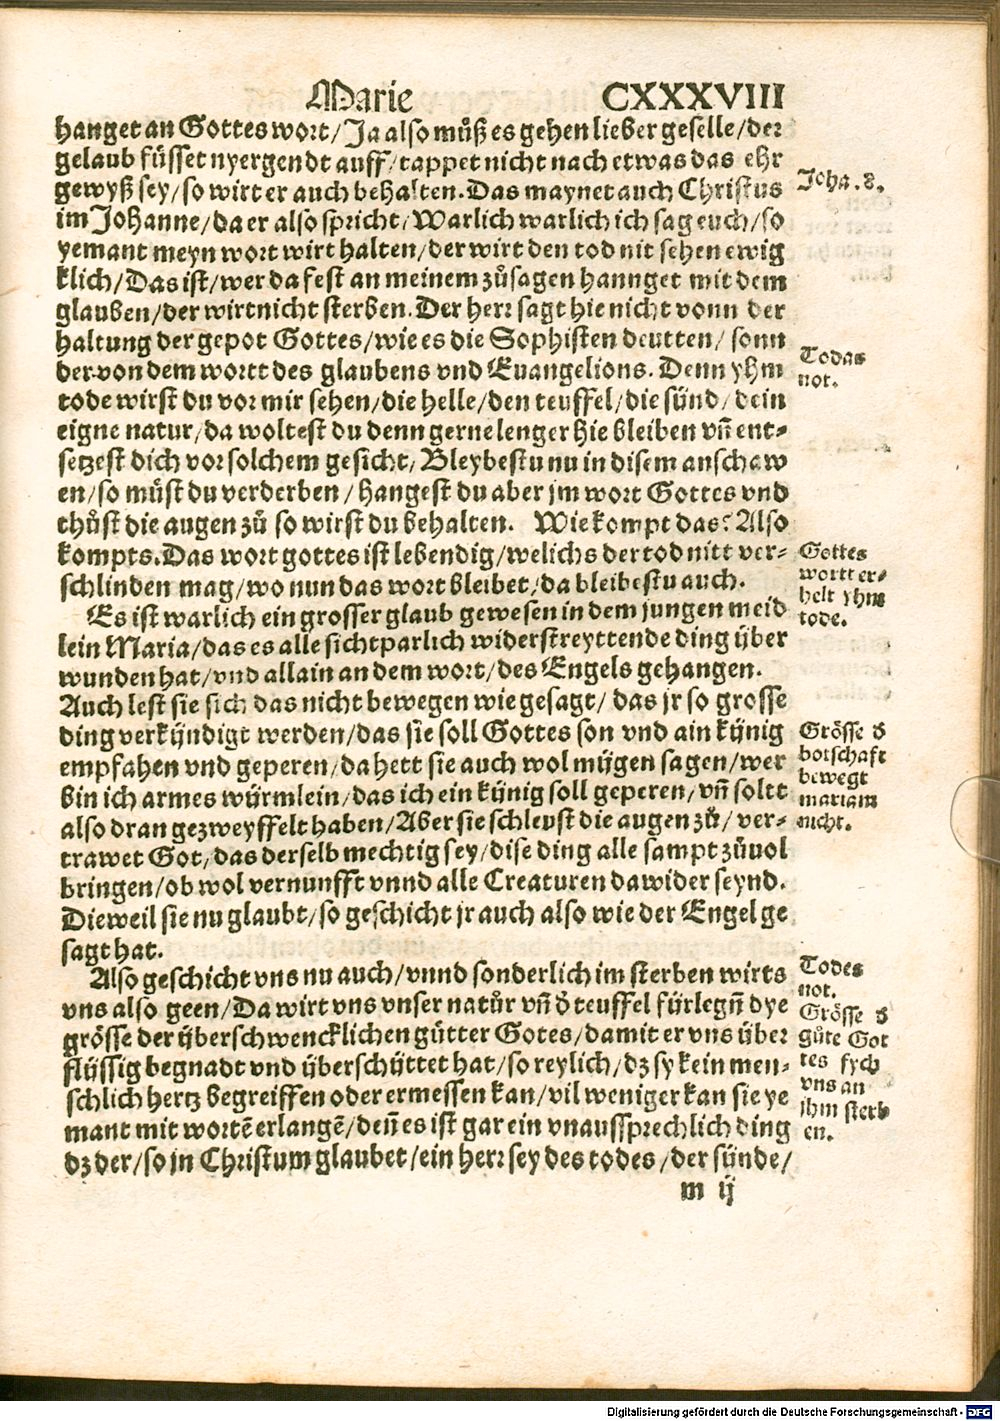 Marie CXXXVIII
hanget an Gottes wort/Ja also můß es gehen lieber geselle/der
gelaub fůsset nyergendt auff/tappet nicht nach etwas das ehr
gewyß sey/so wirt er auch behalten. Das maynet auch Christus
im Johanne/da er also spricht/Warlich warlich ich sag euch/so
yemant meyn wort wirt halten/der wirt den tod nit sehen ewig
klich/Das ist/wer da fest an meinem zůsagen hannget mit dem
glauben/der wirt nicht sterben. Der herr sagt hie nicht vonn der
haltung der gepot Gottes/wie es die Sophisten deutten/ sonn
der von dem wortt des glaubens vnd Euangelions. Denn yhm
tode wirst du vor mir sehen/die helle/den teuffel/die sünd/dein
eigne natur/da woltest du denn gerne lenger hie bleiben vñ ent-
setzest dich vor solchem gesicht/Bleybestu nu in disem anschaw
en/so můst du verderben/hangest du aber jm wort Gottes vnd
thůst die augen zů so wirst du behalten. Wie kompt das? Also
kompts. Das wort gottes ist lebendig/welichs der tod nitt ver-
schlinden mag/wo nun das wort bleibet/da bleibestu auch.
Es ist warlich ein grosser glaub gewesen in dem jungen meid
lein Maria/das es alle sichtparlich widerstreyttende ding über
wunden hat/vnd allain an dem wort/des Engels gehangen.
Auch lest sie sich das nicht bewegen wie gesagt/ das jr so grosse
ding verkündigt werden/das sie soll Gottes son vnd ain künig
empfahen vnd geperen/da hett sie auch wol mügen sagen/wer
bin ich armes würmlein/das ich ein künig soll geperen/vñ soltt
also dran gezweyffelt haben/Aber sie schleust die augen zů/ver-
trawet Got/das derselb mechtig sey/dise ding alle sampt zůuol
bringen/ob wol vernunfft vnnd alle Creaturen dawider seynd.
Dieweil sie nu glaubt/so geschicht jr auch also wie der Engel ge
sagt hat.
Also geschicht vns nu auch/vnnd sonderlich im sterben wirts
vns also geen/Da wirt vns vnser natůr vñ ð teuffel fürlegñ dye
grösse der überschwencklichen gütter Gotes/damit er vns über
flüssig begnadt vnd überschüttet hat/so reylich/dz sy kein men-
schlich hertz begreiffen oder ermessen kan/vil weniger kan sie ye
mant mit wortẽ erlangẽ/deñ es ist gar ein vnaussprechlich ding
dz der/so jn Christum glaubet/ein herr sey des todes/der sünde/
m ij
Joha. 8.
Todas
not.
Gottes
wortt er-
helt yhm
tode.
Grösse ð
botschafft
bewegt
mariam
nicht.
Todes
not.
Grösse ð
gůte Got
tes sych
vns an
ihm sterb
en.
Digitalisierung gefördert durch die Deutsche Forschungsgemeinschaft - DFG